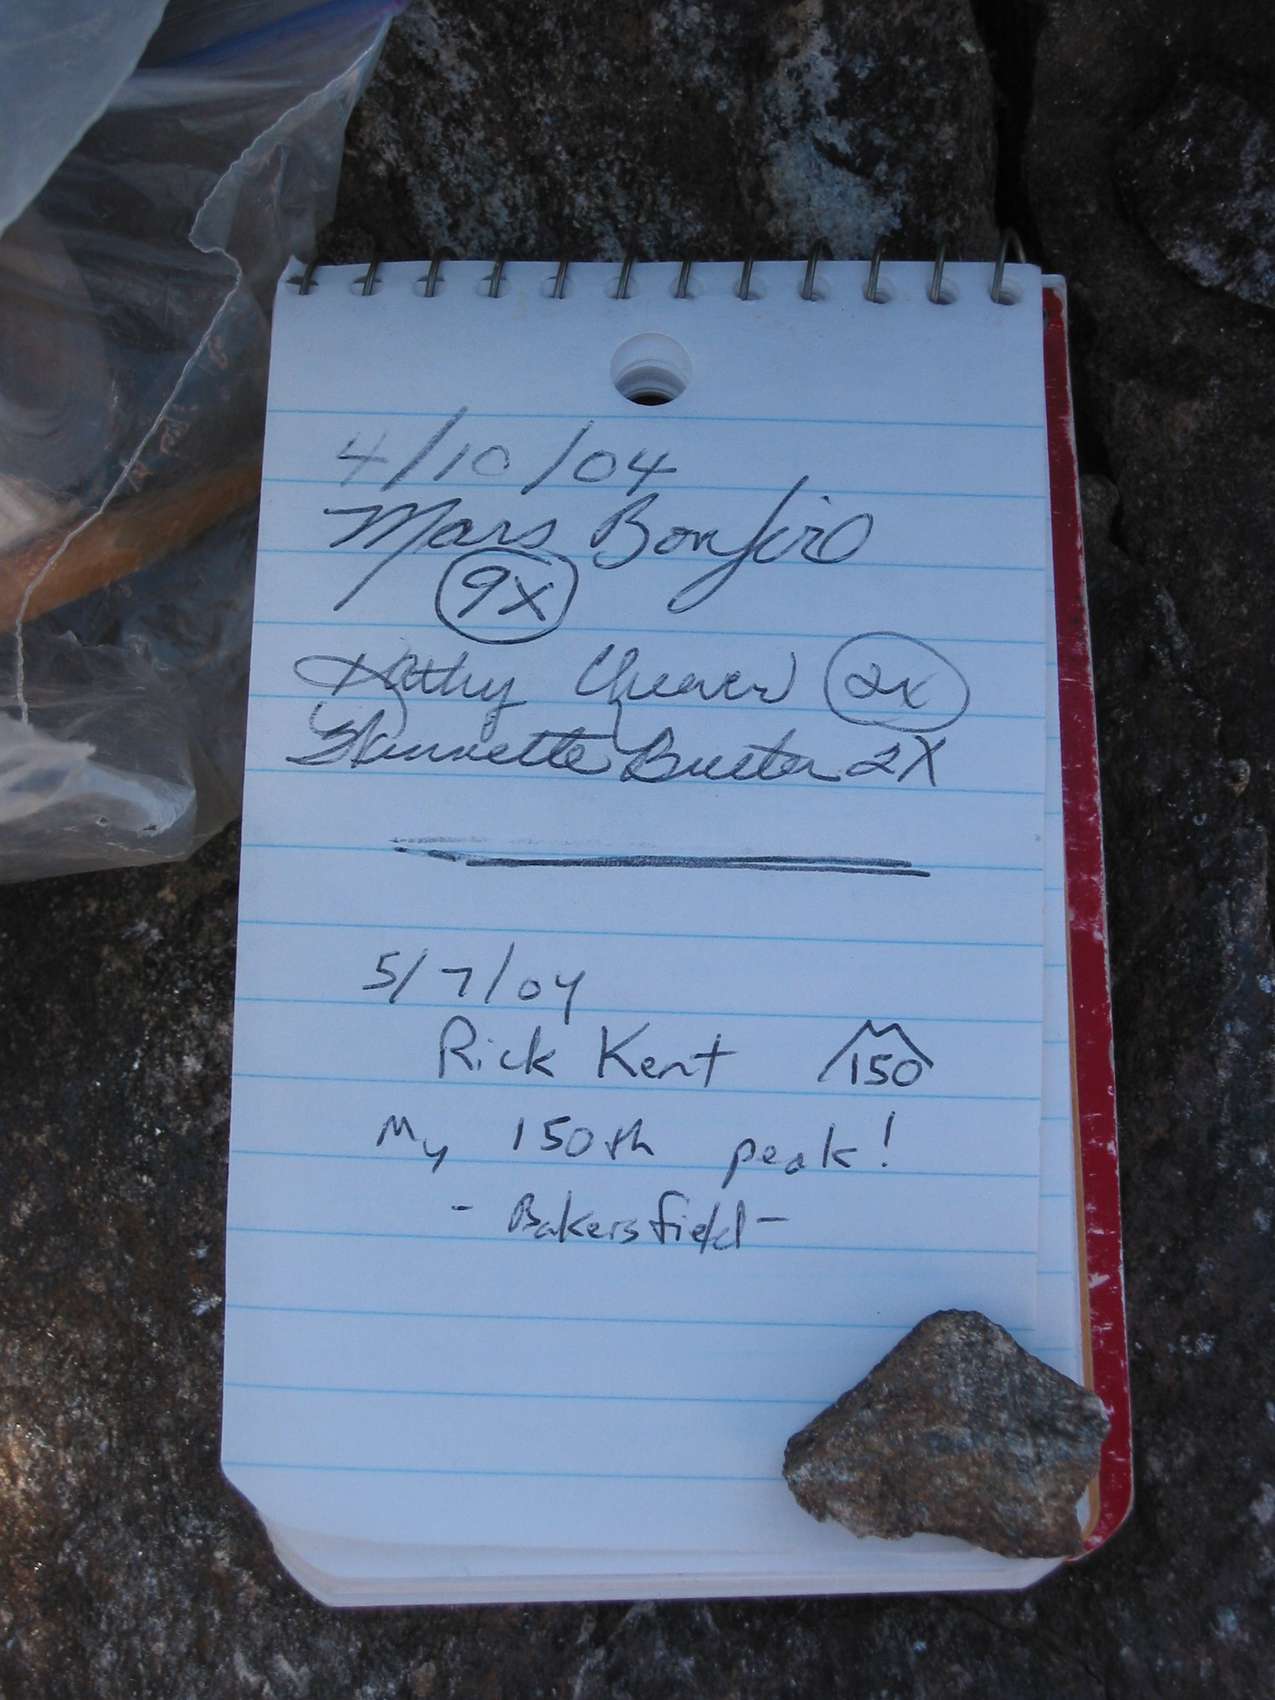 4/10/04
Mars Bonfire
9X
Kathy Cheever 2x
Buster 2X
5/7/04
Rick Kent 150
My 150th peak!
- Bakersfield -